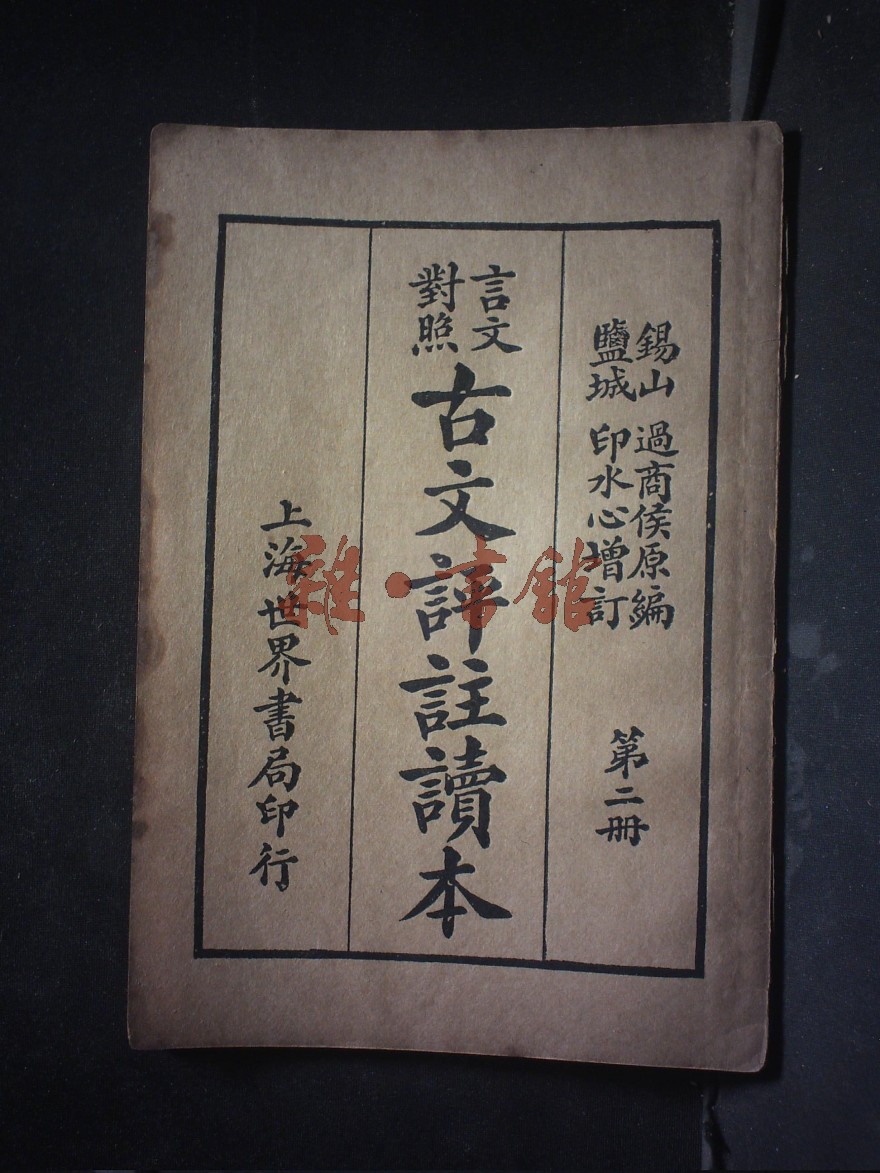 錫山 過商侯原編
鹽城 印水心增訂
第二册
言文
對照
古文評註讀本
上海世界書局印行